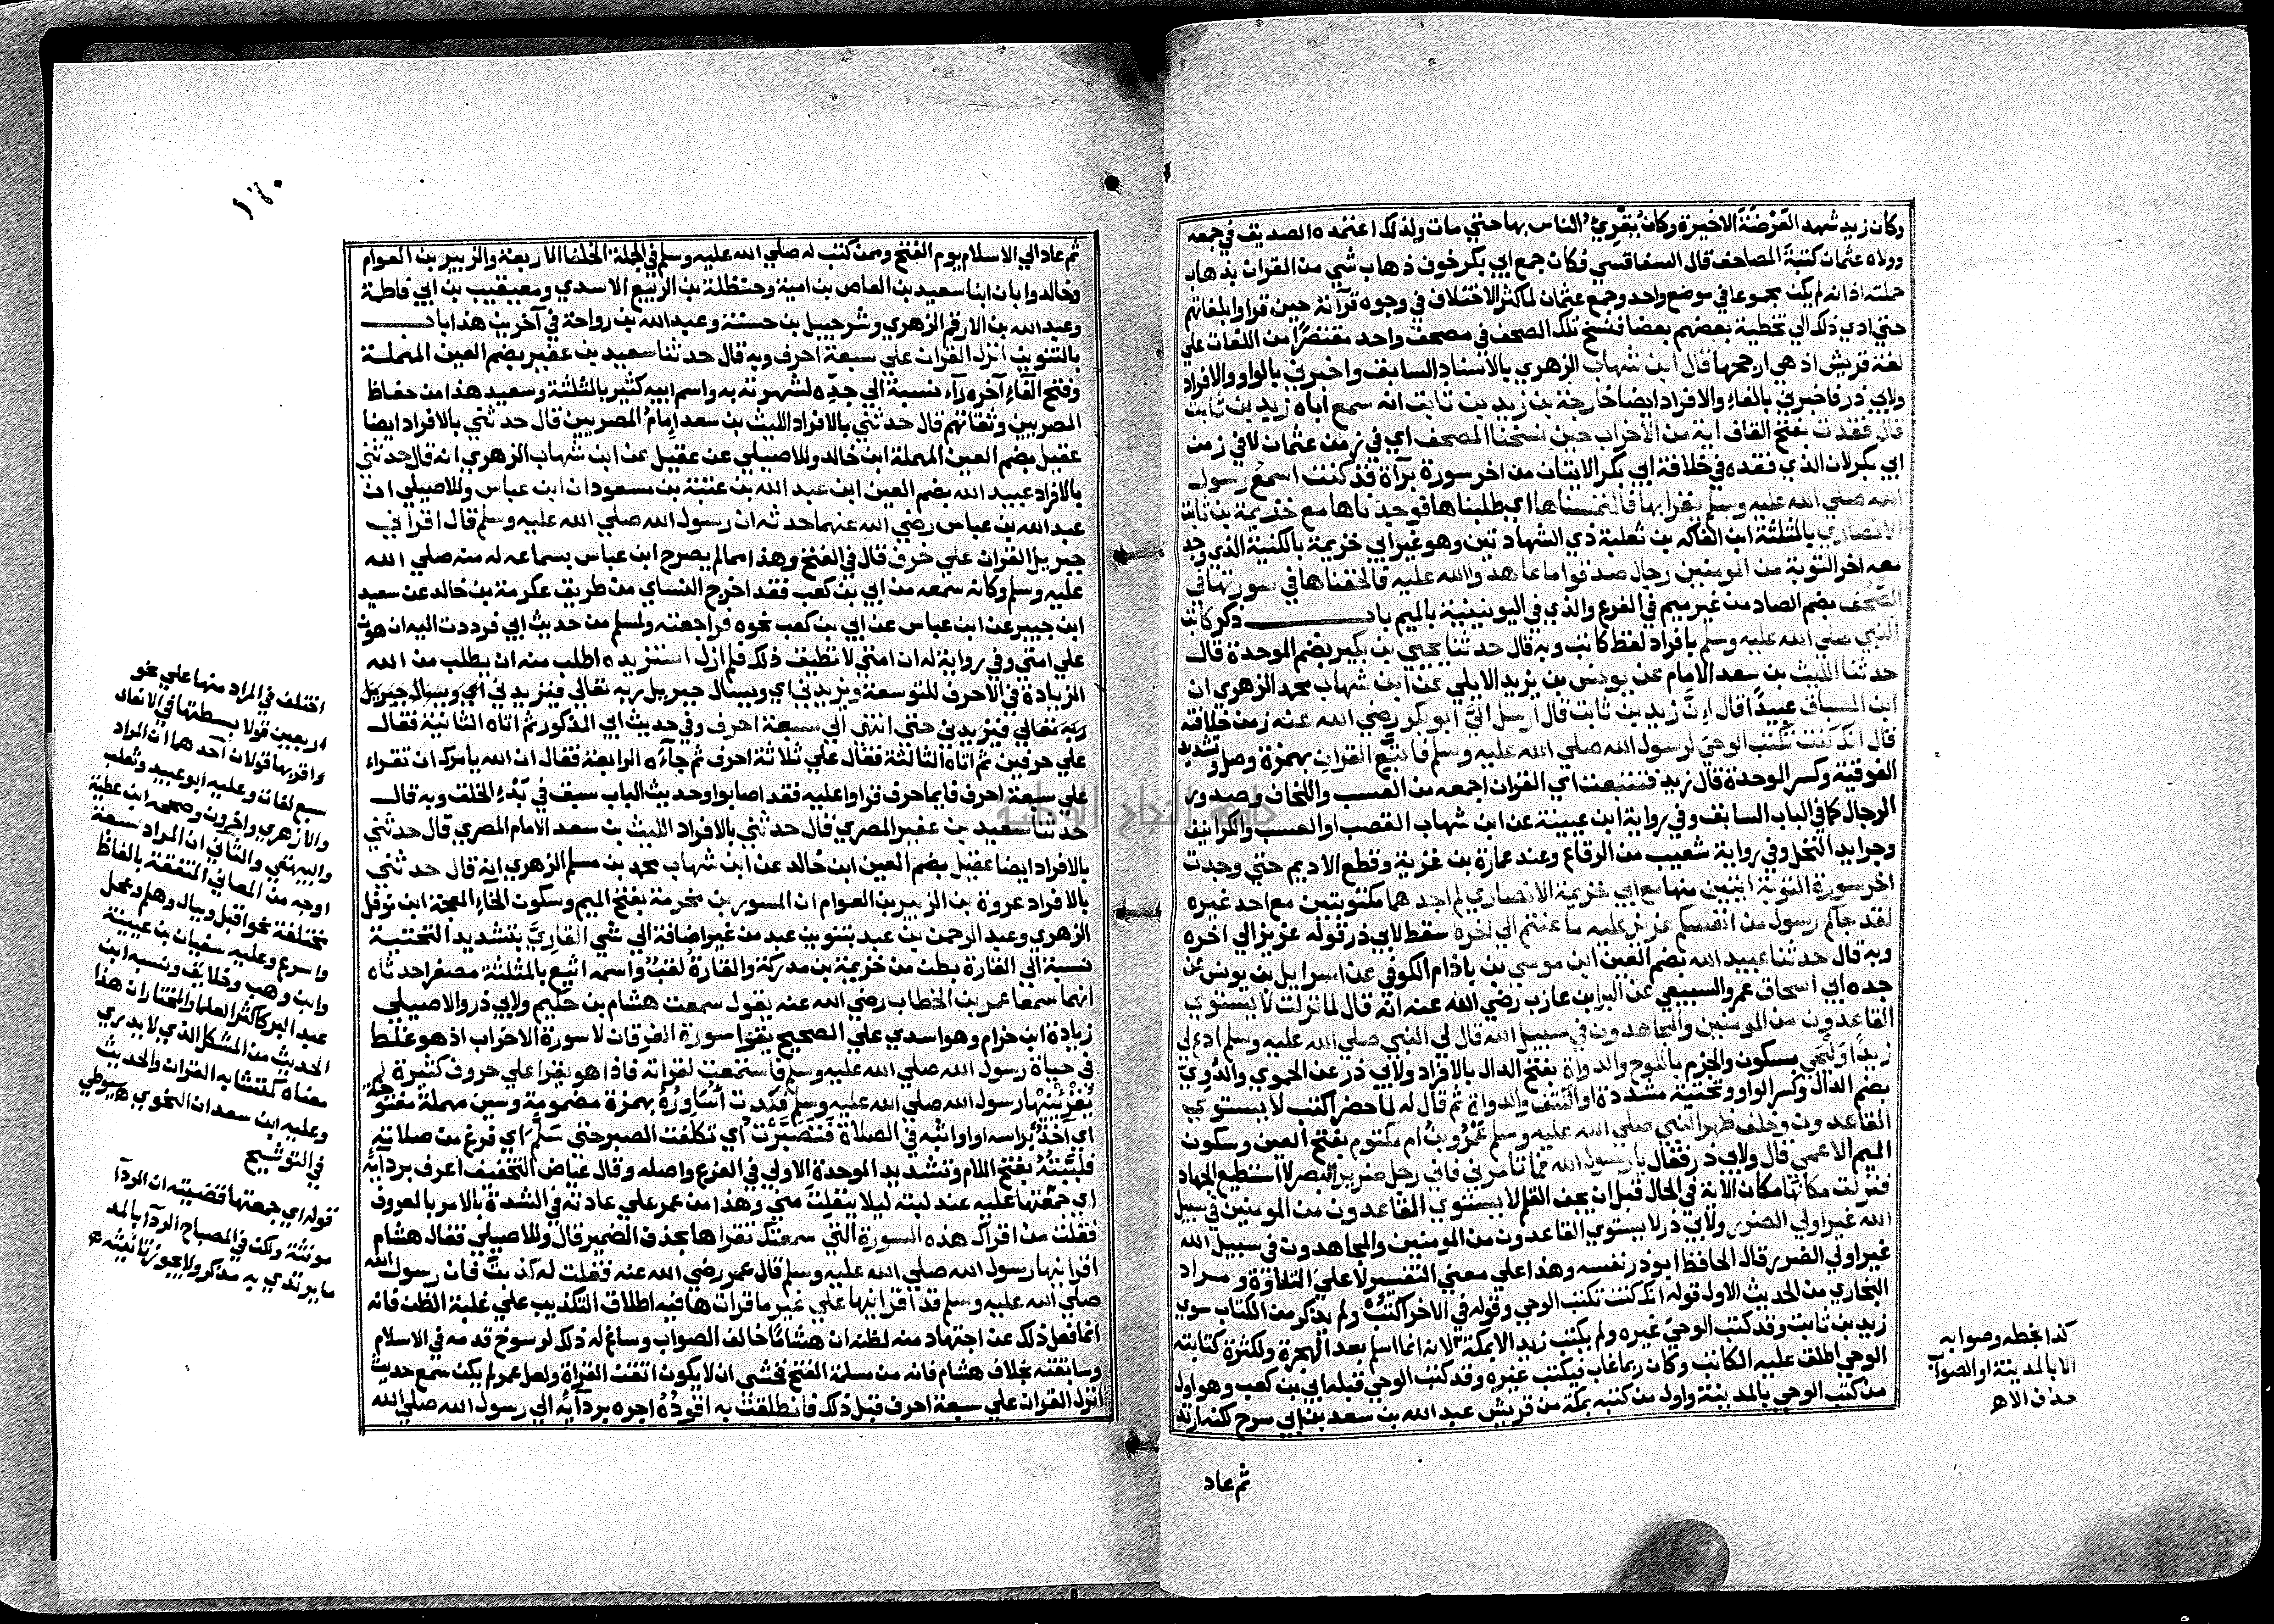 وكان زيد شهد العَرْضَةَ الاخيرة وكان يُقْرِئُ الناس بها حتي مات ولذلك اعتمده الصديق في جمعه
وولاه عثمان كتبة المصاحف قال السفاقسي فكان جمع ابي بكر خوف ذهاب شي من القران بذهاب
حملته اذ انه لم يكن مجموعا في موضع واحد وجمع عثمان لما كثر الاختلاف في وجوه قرآنه حين قراوا بلغاتهم
حتي ادي ذلك الي تخطية بعضهم بعضا فنسخ تلك الصحف في مصحف واحد مقتصرًا من اللغات علي
لغة قريش اذ هي ارجحها قال ابن شهاب الزهري بالاسناد السابق واخبرني بالواو والافراد
ولابي ذر فاخبرني بالفاء والافراد ايضا خارجة بن زيد بن ثابت انه سمع اباه زيد بن ثابت
قال فقدت بفتح القاف اية من الاحزاب حين نسخنا المصحف اي في زمن عثمان لا في زمن
ابي بكر لان الذي فقده في خلافة ابي بكر الايتان من اخر سورة برآة قد كنت اسمع رسول
الله صلي الله عليه وسلم يقرا بها فالتمسناها اي طلبناها فوجدناها مع خزيمة بن ثابت
الانصاري بالمثلثة ابن الفاكه بن ثعلبة ذي الشهادتين وهو غير ابي خزيمة بالكنية الذي وجد
معه اخر التوبة من المومنين رجال صدقوا ما عاهدوا الله عليه فالحقناها في سورتها في
الصُّحُف بضم الصاد من غير ميم في الفرع والذي في اليونينية بالميم باب ذكر كاتب
النبي صلي الله عليه وسلم بافراد لفظ كاتب وبه قال حدثنا يحيي بن بكير بضم الموحدة قال
حدثنا الليث بن سعد الامام عن يونس بن يزيد الايلي عن ابن شهاب محمد الزهري ان
ابن السباق عبيدًا قال اِنَّ زيد بن ثابت قال ارسل اليَّ ابو بكر رضي الله عنه زمن خلافته
قال انك كنت تكتب الوحيَ لرسول الله صلي الله عليه وسلم فاتبَّع القرانَ بهمزة وصل وتشديد
الفوقية وكسر الموحدة قال زيد فتتبعت اي القران اجمعه من العسب واللخاف وصدور
الرجال كما في الباب السابق وفي رواية ابن عيينة عن ابن شهاب القصب او العسب والكرانيف
وجرايد النخل وفي رواية شعيب من الرقاع وعند عمارة بن غزية وقطع الاديم حتي وجدت
اخر سورة التوبة ايتين منها مع ابي خزيمة الانصاري لم اجدهما مكتوبتين مع احد غيره
لقد جآكم رسول من انفسكم عزيز عليه ما عنتم الي اخره سقط لابي ذر قوله عزيز الي اخره
وبه قال حدثنا عبيد الله بضم العين ابن موسي بن باذام الكوفي عن اسراييل بن يونس عن
جده ابي اسحاق عمرو السبيعي عن البرا بن عازب رضي الله عنه انه قال لما نزلت لا يستوي
القاعدون من المومنين والمجاهدون في سبيل الله قال لي النبي صلي الله عليه وسلم ادع لي
زيدًا وليجي بسكون والجزم باللوح والدواة بفتح الدال بالافراد ولابي ذر عن الحموي والدُوِيّ
بضم الدال وكسر الواو وتحتية مشددة او الكتف والدواة ثم قال له لما حضر اكتب لا يستوي
القاعدون وخلف ظهر النبي صلي الله عليه وسلم عَمْرُو بنُ ام مكتوم بفتح العين وسكون
الميم الاعمي قال ولابي ذر فقال يا رسول الله فما تامرني فاني رجل ضرير البصر لا استطيع الجهاد
فنزلت مكانَها مكان الاية في الحال قبل ان يجف القلم لا يستوي القاعدون من المومنين في سبيل
الله غير اولي الضرر ولابي ذر لا يستوي القاعدون من المومنين والمجاهدون في سبيل الله
غير اولي الضرر قال الحافظ ابو ذر نفسه وهذا علي معني التفسير لا علي التلاوة ومراد
البخاري من الحديث الاول قوله انك كنت تكتب الوحي وقوله في الاخر اكتب ولم يذكر من الكتاب سوي
زيد بن ثابت وقد كتب الوحيَ غيره ولم يكتب زيد الا بمكة لانه انما اسلم بعد الهجرة ولكثرة كتابته
الوحي اطلق عليه الكاتب وكان ربما غاب فيكتب غيره وقد كتب الوحي قبله ابي بن كعب وهو اول
من كتب الوحي بالمدينة واول من كتبه بمكة من قريش عبد الله بن سعد بن ابي سرح لكنه ارتد
كذا بخطه وصوابه
الا بالمدينة او الصواب
حذف الا هـ
ثم عاد
١٤٠
ثم عاد الي الاسلام يوم الفتح وممن كتب له صلي الله عليه وسلم في الجملة الخلفا الاربعة والزبير بن العوام
وخالد وابان ابنا سعيد بن العاص بن امية وحنظلة بن الربيع الاسدي ومعيقيب بن ابي فاطمة
وعبد الله بن الارقم الزهري وشرحبيل بن حسنة وعبد الله بن رواحة في آخرين هذا باب
بالتنوين انزل القران علي سبعة احرف وبه قال حدثنا سعيد بن عفير بضم العين المهملة
وفتح الفاء آخره رآء نسبة الي جدّه لشهرته به واسم ابيه كثير بالمثلثة وسعيد هذا من حفاظ
المصريين وثقاتهم قال حدثني بالافراد الليث بن سعد اِمامُ المصريين قال حدثني بالافراد ايضا
عقيل بضم العين المهملة ابن خالد وللاصيلي عن عقيل عن ابن شهاب الزهري انه قال حدثني
بالافراد عبيد الله بضم العين ابن عبد الله بن عتبة بن مسعود ان ابن عباس وللاصيلي ان
عبد الله بن عباس رضي الله عنهما حدثه ان رسول الله صلي الله عليه وسلم قال اقراني
جبريل القران علي حرف قال في الفتح وهذا مما لم يصرح ابن عباس بسماعه له منه صلي الله
عليه وسلم وكانه سمعه من ابي بن كعب فقد اخرج النساي من طريق عكرمة بن خالد عن سعيد
ابن جبير عن ابن عباس عن ابي بن كعب نحوه فراجعته ولمسلم من حديث ابي فرددت اليه ان هون
علي امتي وفي رواية له ان امتي لا تطيق ذلك فلم ازل استزيده اطلب منه ان يطلب من الله
الزيادة في الاحرف للتوسعة ويزيدني اي ويسال جبريل ربه تعالي فيزيدني اي ويسال جبريل
ربَه تعالي فيزيدني حتي انتهي الي سبعة احرف وفي حديث ابي المذكور ثم اتاه الثانية فقال
علي حرفين ثم اتاه الثالثة فقال علي ثلاثة احرف ثم جآءه الرابعة فقال ان الله يامرك ان تقراء
علي سبعة احرف فايما حرف قراوا عليه فقد اصابوا وحديث الباب سبق في بَدْءِ الخلق وبه قال
حدثنا سعيد بن عفير المصري قال حدثني بالافراد الليث بن سعد الامام المصري قال حدثني
بالافراد ايضا عقيل بضم العين ابن خالد عن ابن شهاب محمد بن مسلم الزهري انه قال حدثني
بالافراد عروة بن الزبير بن العوام ان المسور بن مخرمة بفتح الميم وسكون الخاء المعجمة ابن نوفل
الزهري وعبد الرحمن بن عبد بتنوين عبد من غير اضافة الي شي القاريّ بتشديد التحتية
نسبة الي القارة بطن من خزيمة بن مدركة والقارة لقبٌ واسمه اثيع بالمثلثة مصغرا حدثاه
انهما سمعا عمر بن الخطاب رضي الله عنه يقول سمعت هشام بن حكيم ولابي ذر والاصيلي
زيادة ابن حزام وهو اسدي علي الصحيح يقرا سورة الفرقان لا سورة الاحزاب اذ هو غلط
في حياة رسول الله صلي الله عليه وسلم فاستمعت لقراته فاذا هو يقرا علي حروف كثيرة لم
يُقْرِئنيها رسول الله صلي الله عليه وسلم فكدت اُسَاوِرُهُ بهمزة مضمومة وسين مهملة مفتوحة
اي آخذُ براسه او اواثبه في الصلاة فتصَبَّرْتُ اي تكلفت الصبر حتي سَلَّمَ اي فرغ من صلاته
فلبَّبْتُهُ بفتح اللام وتشديد الموحدة الاولي في الفرع واصله وقال عياض التخفيف اعرف بردآئه
اي جمعتها عليه عند لبته ليلا ينفلت مني وهذا من عمر علي عادته في الشدة بالامر بالمعروف
فقلت من اقراك هذه السورة التي سمعتك تقراها بحذف الضمير قال وللاصيلي فقال هشام
اقرانيها رسول الله صلي الله عليه وسلم قال عمر رضي الله عنه فقلت له كذبت فان رسول الله
صلي الله عليه وسلم قد اقرانيها علي غير ما قرات ها فيه اطلاق التكذيب علي غلبة الظن فانه
انما فعل ذلك عن اجتهاد منه لظنه ان هشامًا خالف الصواب وساغ له ذلك لرسوخ قدمه في الاسلام
وسابقته بخلاف هشام فانه من مسلمة الفتح فخشي ان لا يكون اتقن القراة ولعل عمر لم يكن سمع حديث
انزل القران علي سبعة احرف قبل ذلك فانطلقت به اقودُهُ اجره بردآئه الي رسول الله صلي الله
اختلف في المراد منها علي نحو
اربعين قولا بسطتها في الاتقان
واقربها قولان احدهما ان المراد
سبع لغات وعليه ابو عبيد وثعلب
والازهري واخرون وصححه ابن عطية
والبيهقي والثاني ان المراد سبعة
اوجه من المعاني المتفقة بالفاظ
مختلفة نحو اقبل وتعال وهلم وعجل
واسرع وعليه سفيان بن عيينة
وابن وهب وخلايق ونسبه ابن
عبد البر لاكثر العلما والمختار ان هذا
الحديث من المشكل الذي لا يدري
معناه كمتشابه القران والحديث
وعليه ابن سعدان النحوي هـ سيوطي
في التوشيح
قوله اي جمعتها قضيته ان الردآ
مونثة ولكن في المصباح الردآ بالمد
ما يرتدي به مذكر ولا يجوز تانيثه هـ